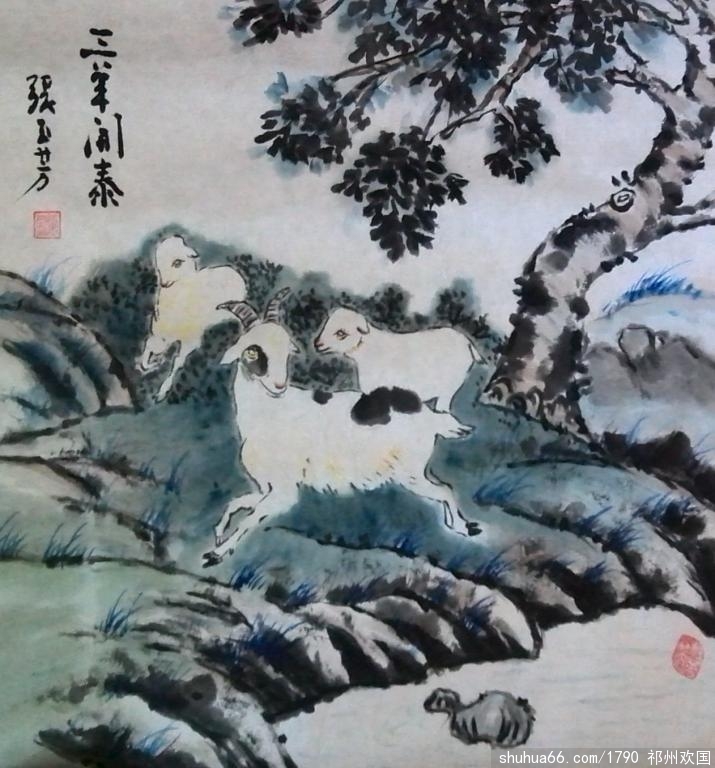 三羊開泰
張玉芳
shuhua66.com/1790 祁州欢国